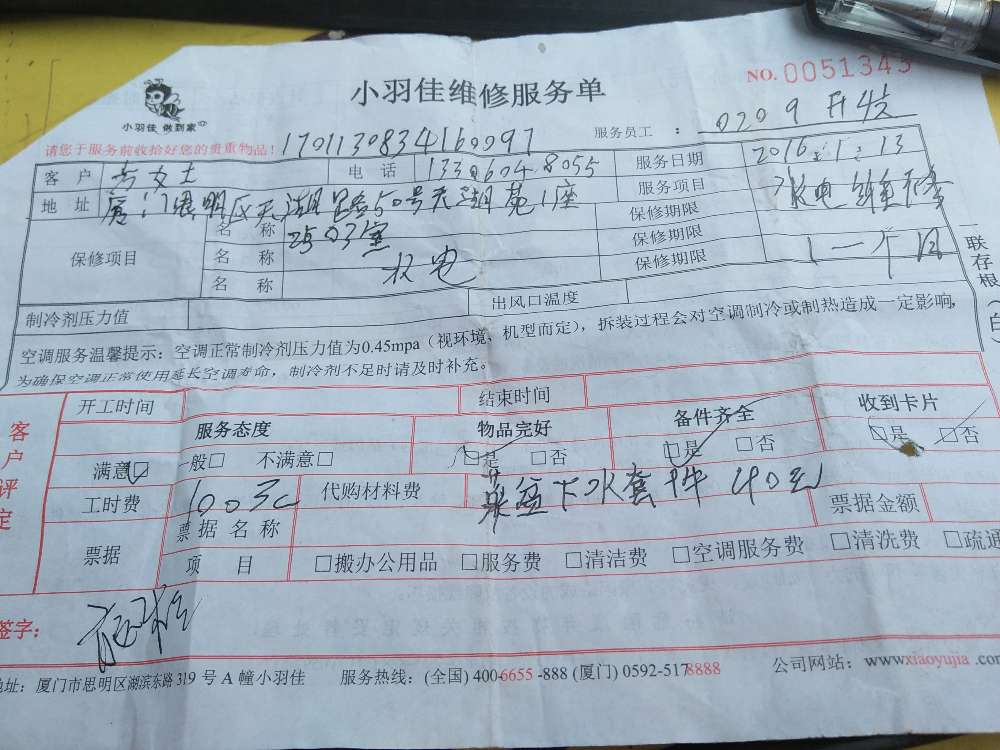 小羽佳维修服务单
NO.0051343
小羽佳 做到家
请您于服务前收拾好您的贵重物品！ 1701130834160097
服务员工： 0209
客户 女士 电话 服务日期 2016.1.13
地址 厦门思明区天湖路50号天湖苑1座 服务项目 水电维修
2503室
保修项目 名称 保修期限
名称 水电 保修期限 1一个月
名称 保修期限
制冷剂压力值 出风口温度
空调服务温馨提示：空调正常制冷剂压力值为0.45mpa（视环境、机型而定），拆装过程会对空调制冷或制热造成一定影响，
为确保空调正常使用延长空调寿命，制冷剂不足时请及时补充。
一联存根（白）
客户评定
开工时间 结束时间
服务态度 物品完好 备件齐全 收到卡片
满意□ 一般□ 不满意□ □是 □否 □是 □否 □是 □否
工时费 100元 代购材料费 菜盆下水套件 40元
票据 票据名称 票据金额
项目 □搬办公用品 □服务费 □清洁费 □空调服务费 □清洗费 □疏通
签字：
地址：厦门市思明区湖滨东路319号A幢小羽佳 服务热线：(全国) 400-6655-888 (厦门) 0592-5178888 公司网站：www.xiaoyujia.com